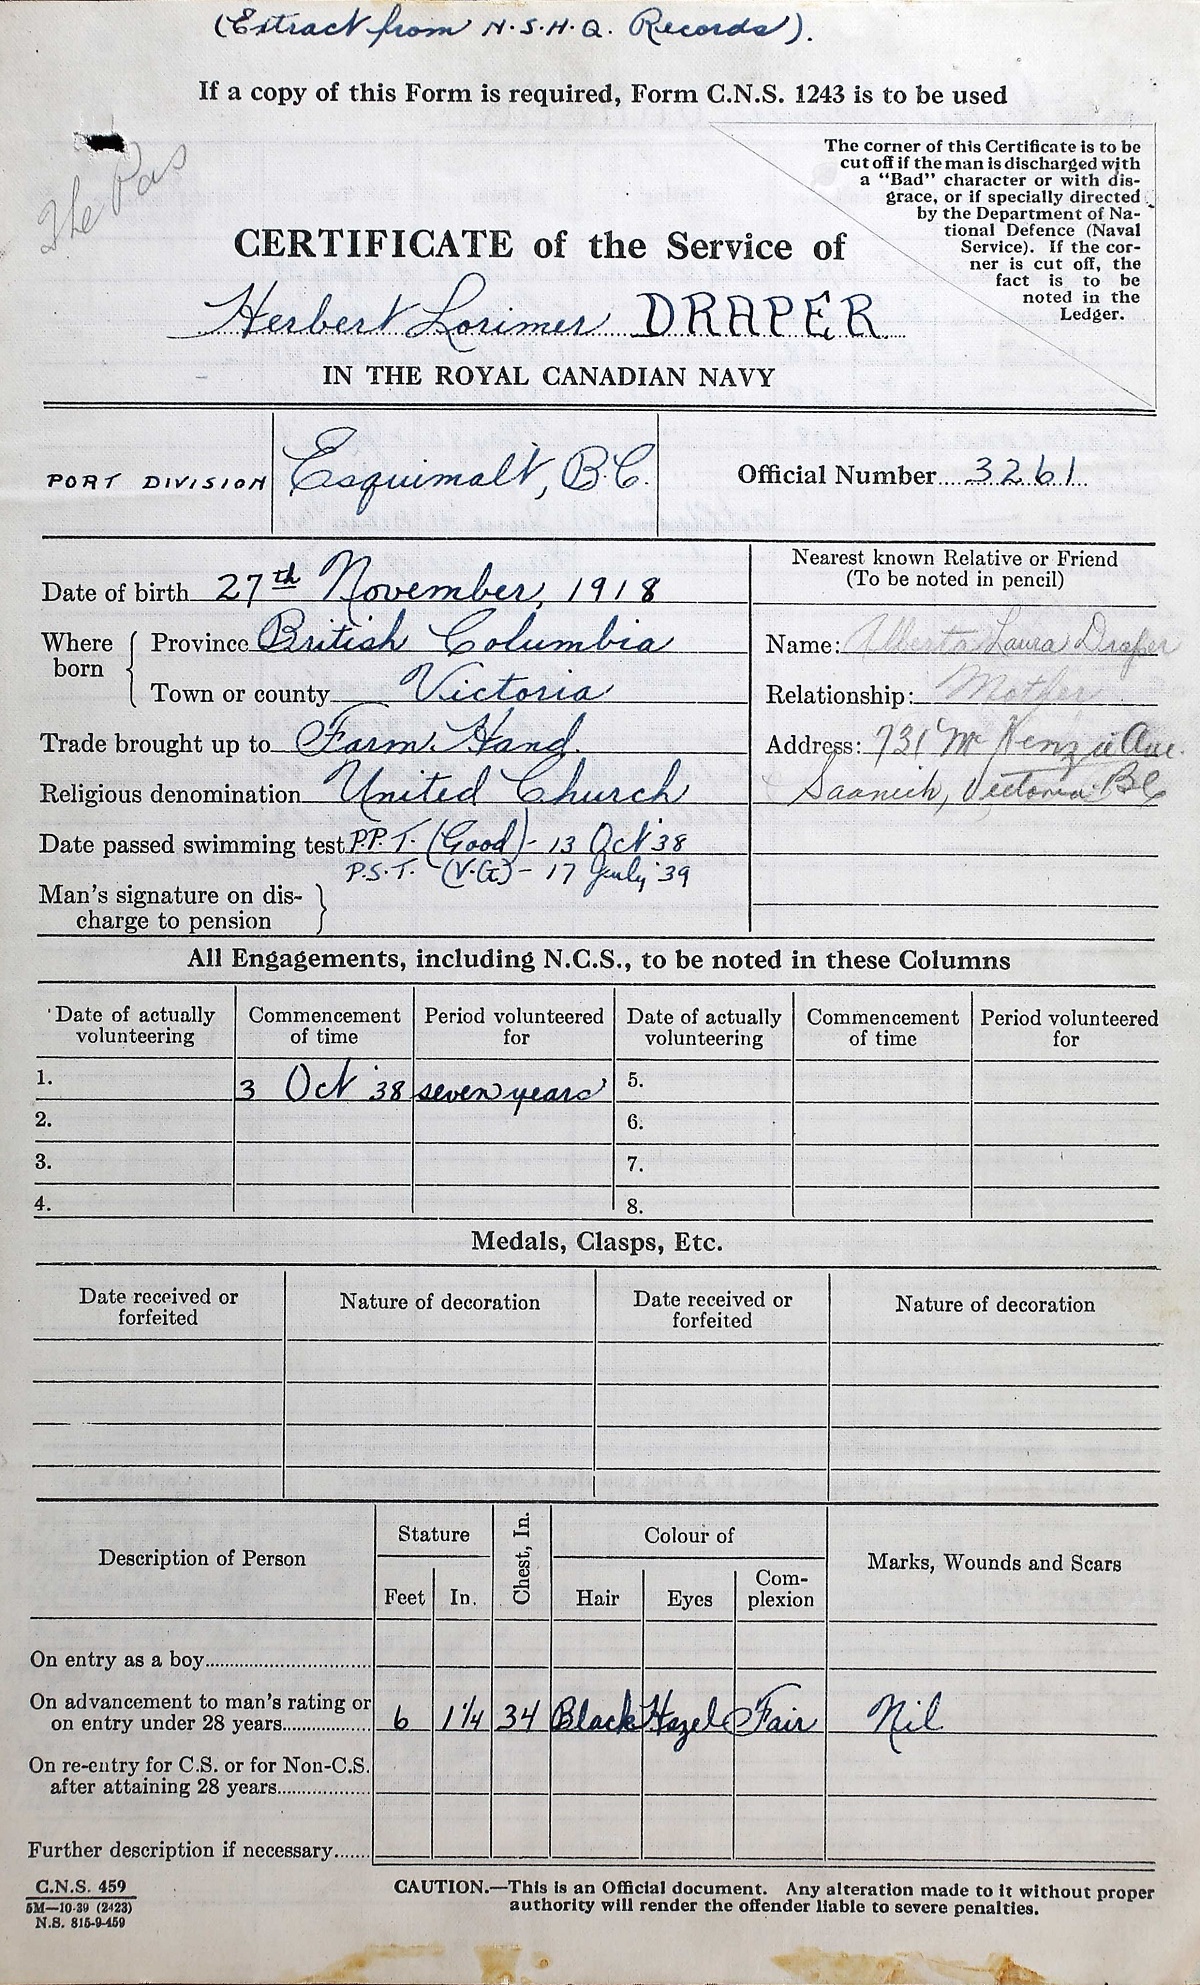 (Extract from N.S.H.Q. Records).
If a copy of this Form is required, Form C.N.S. 1243 is to be used
The Pas
The corner of this Certificate is to be
cut off if the man is discharged with
a "Bad" character or with dis-
grace, or if specially directed
by the Department of Na-
tional Defence (Naval
Service). If the cor-
ner is cut off, the
fact is to be
noted in the
Ledger.
CERTIFICATE of the Service of
Herbert Lorimer DRAPER
IN THE ROYAL CANADIAN NAVY
PORT DIVISION Esquimalt, B.C. Official Number 3261
Date of birth 27th November, 1918
Where born Province British Columbia
Town or county Victoria
Trade brought up to Farm Hand
Religious denomination United Church
Date passed swimming test P.P.T. (Good) - 13 Oct '38
P.S.T. (V.G.) - 17 July '39
Man's signature on dis-
charge to pension
Nearest known Relative or Friend
(To be noted in pencil)
Name: Alberta Laura Draper
Relationship: Mother
Address: 731 McKenzie Ave.
Saanich, Victoria BC
All Engagements, including N.C.S., to be noted in these Columns
Date of actually volunteering Commencement of time Period volunteered for Date of actually volunteering Commencement of time Period volunteered for
1. 3 Oct '38 seven years 5.
2. 6.
3. 7.
4. 8.
Medals, Clasps, Etc.
Date received or forfeited Nature of decoration Date received or forfeited Nature of decoration
Description of Person Stature Chest, In. Colour of Marks, Wounds and Scars
Feet In. Hair Eyes Com-
plexion
On entry as a boy
On advancement to man's rating or
on entry under 28 years 6 1 1/4 34 Black Hazel Fair Nil
On re-entry for C.S. or for Non-C.S.
after attaining 28 years
Further description if necessary
C.N.S. 459
5M—10-39 (2423)
N.S. 815-9-459
CAUTION.—This is an Official document. Any alteration made to it without proper
authority will render the offender liable to severe penalties.